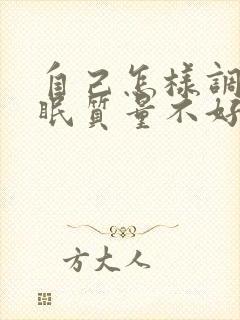 自己怎樣調
眠質量不好
方大人